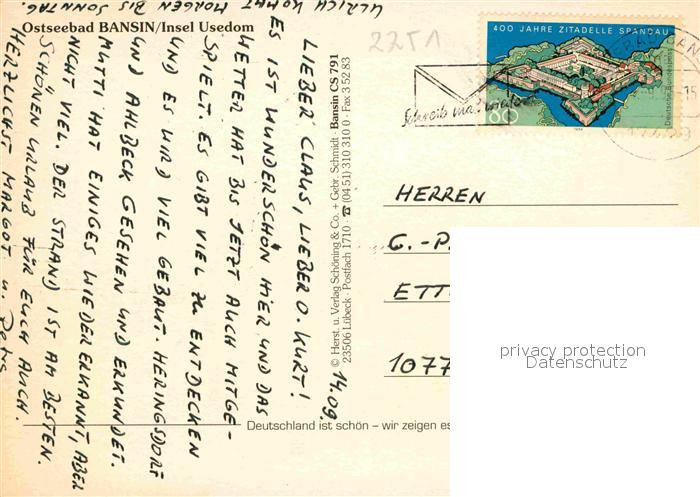 ULRICH KOMMT MORGEN BIS SONNTAG.
Ostseebad BANSIN/Insel Usedom
14.09.
LIEBER CLAUS, LIEBER O. KURT!
ES IST WUNDERSCHÖN HIER UND DAS
WETTER HAT BIS JETZT AUCH MITGE-
SPIELT. ES GIBT VIEL ZU ENTDECKEN
UND ES WIRD VIEL GEBAUT. HERINGSDORF
UND AHLBECK GESEHEN UND ERKUNDET.
MUTTI HAT EINIGES WIEDERERKANNT, ABER
NICHT VIEL. DER STRAND IST AM BESTEN.
SCHÖNEN URLAUB FÜR EUCH AUCH.
HERZLICHST MARGOT U. Petra
© Herst. u. Verlag Schöning & Co. + Gebr. Schmidt · Bansin CS 791
23506 Lübeck · Postfach 1710 · ☎ (04 51) 310 310 0 · Fax 3 52 83
2251
400 JAHRE ZITADELLE SPANDAU
Deutsche Bundespost
80
1994
Schreib mal wieder
HERREN
C.-P.
ETT
1077
privacy protection
Datenschutz
Deutschland ist schön – wir zeigen es